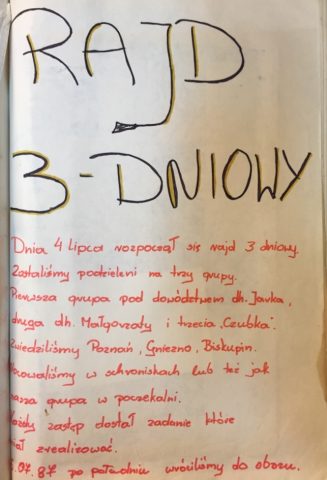 RAJD
3-DNIOWY
Dnia 4 Lipca rozpoczął się rajd 3 dniowy.
Zostaliśmy podzieleni na trzy grupy.
Pierwsza grupa pod dowództwem dh. Jarka,
druga dh. Małgorzaty i trzecia „Czubka".
Zwiedziliśmy Poznań, Gniezno, Biskupin.
Nocowaliśmy w schroniskach lub też jak
nasza grupa w poczekalni.
Każdy zastęp dostał zadanie które
miał zrealizować.
.07.87 po południu wróciliśmy do obozu.